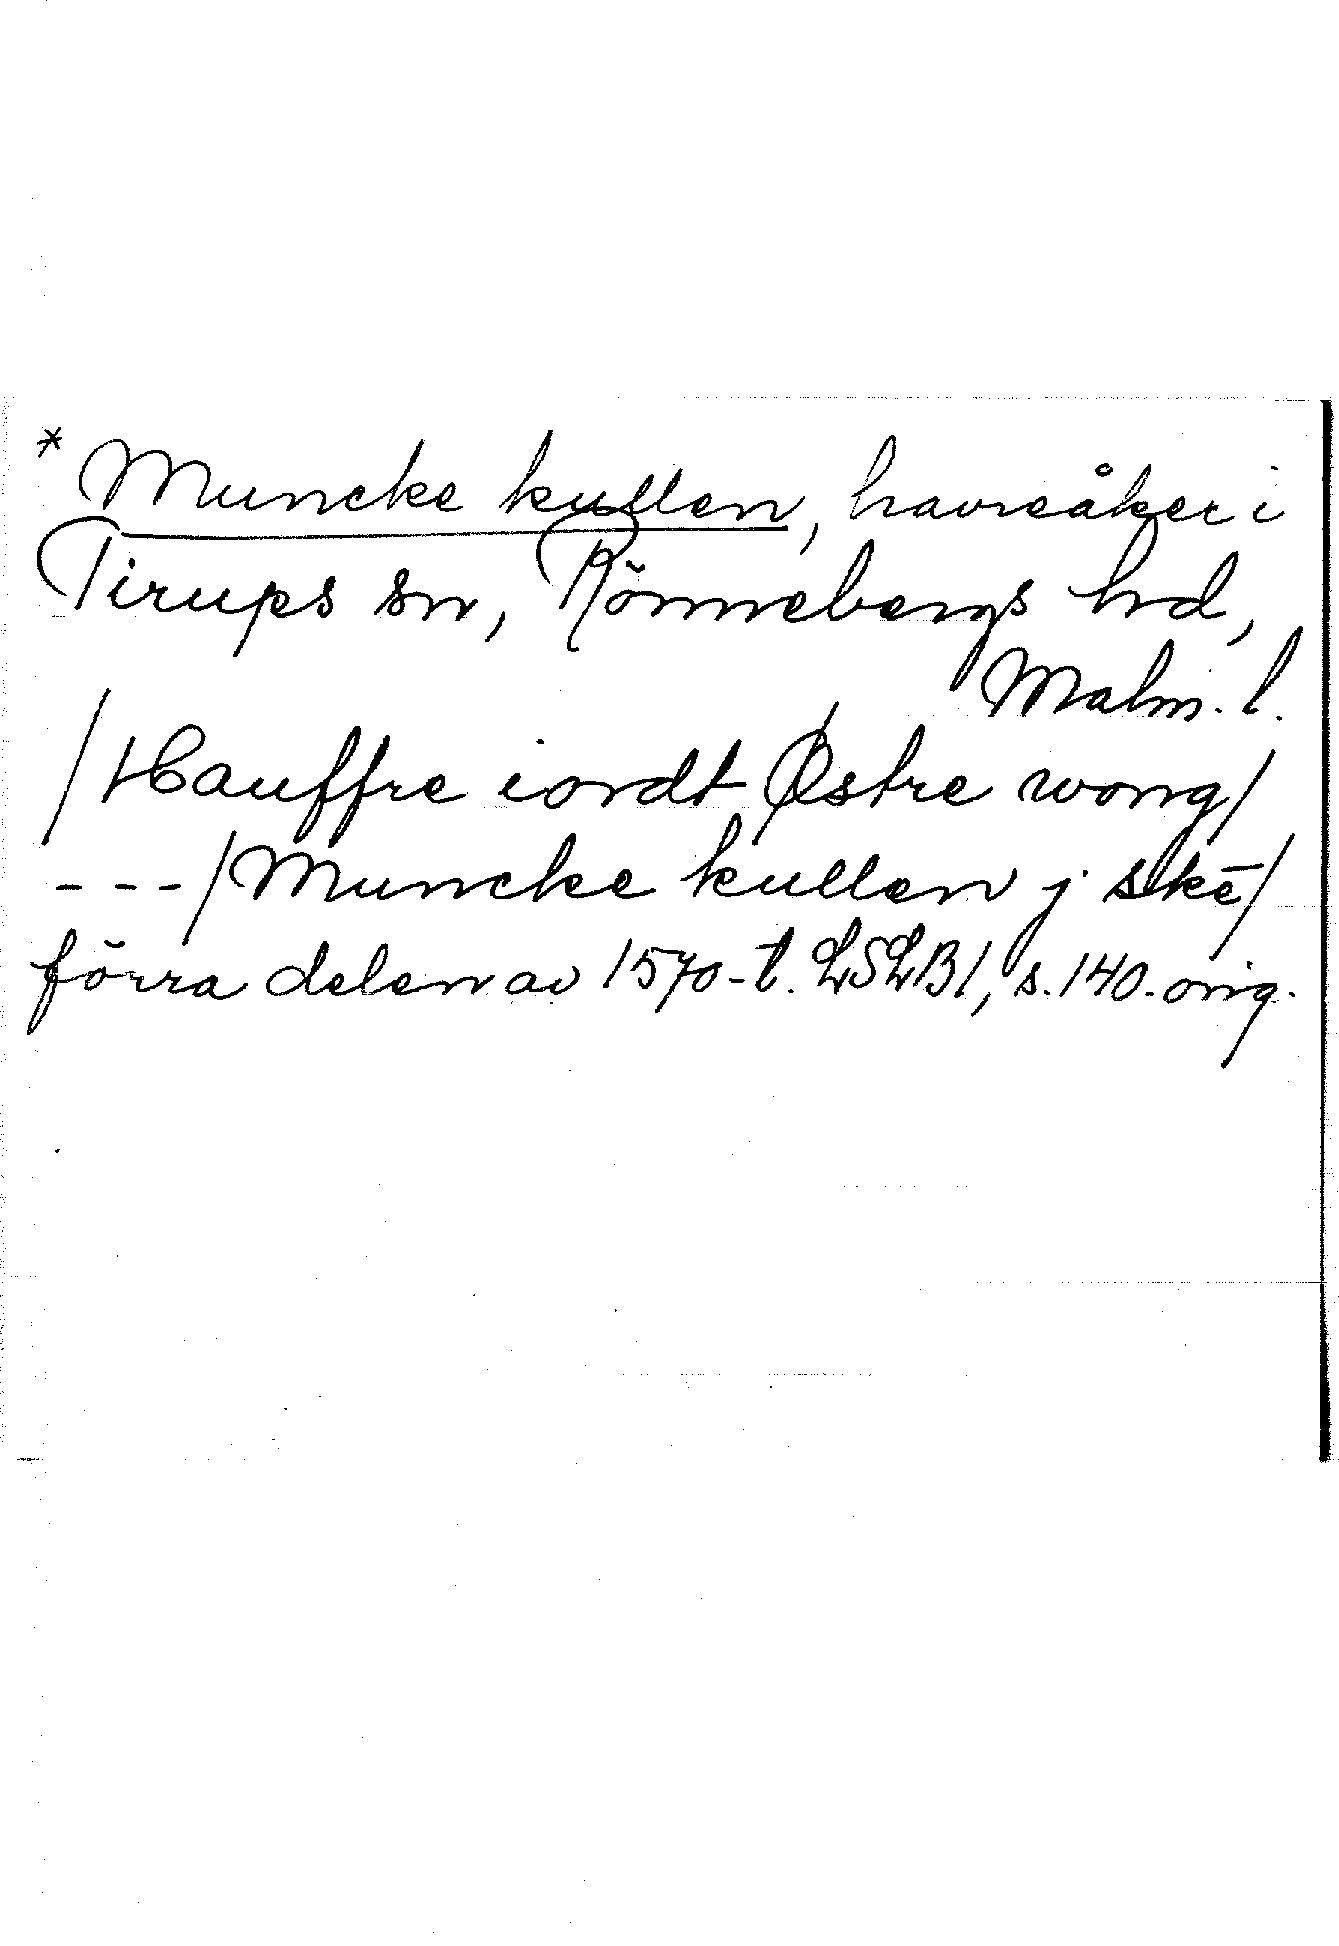 * Muncke kullen, havreåker i
Tirups sn, Rönnebergs hd,
Malm. l.
/Hauffre iordt Østre wong/
---/Muncke kullen j skē/
förra delen av 1570-t. LSLB1, s. 140. orig.